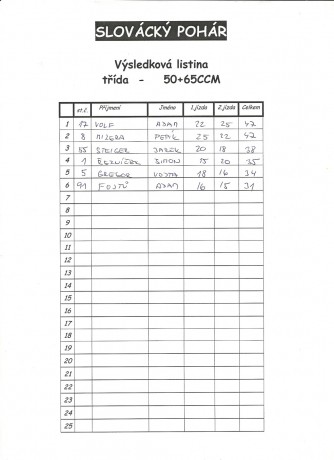 SLOVÁCKÝ POHÁR
Výsledková listina
třída - 50+65CCM
st.č. Příjmení Jméno 1.jízda 2.jízda Celkem
1 17 VOLF ADAM 22 25 47
2 8 MIZERA PETR 25 22 47
3 55 STEIGER JAREK 20 18 38
4 1 ŘEZNÍČEK ŠIMON 15 20 35
5 5 GREGOR VOJTA 18 16 34
6 91 FOJTŮ ADAM 16 15 31
7
8
9
10
11
12
13
14
15
16
17
18
19
20
21
22
23
24
25